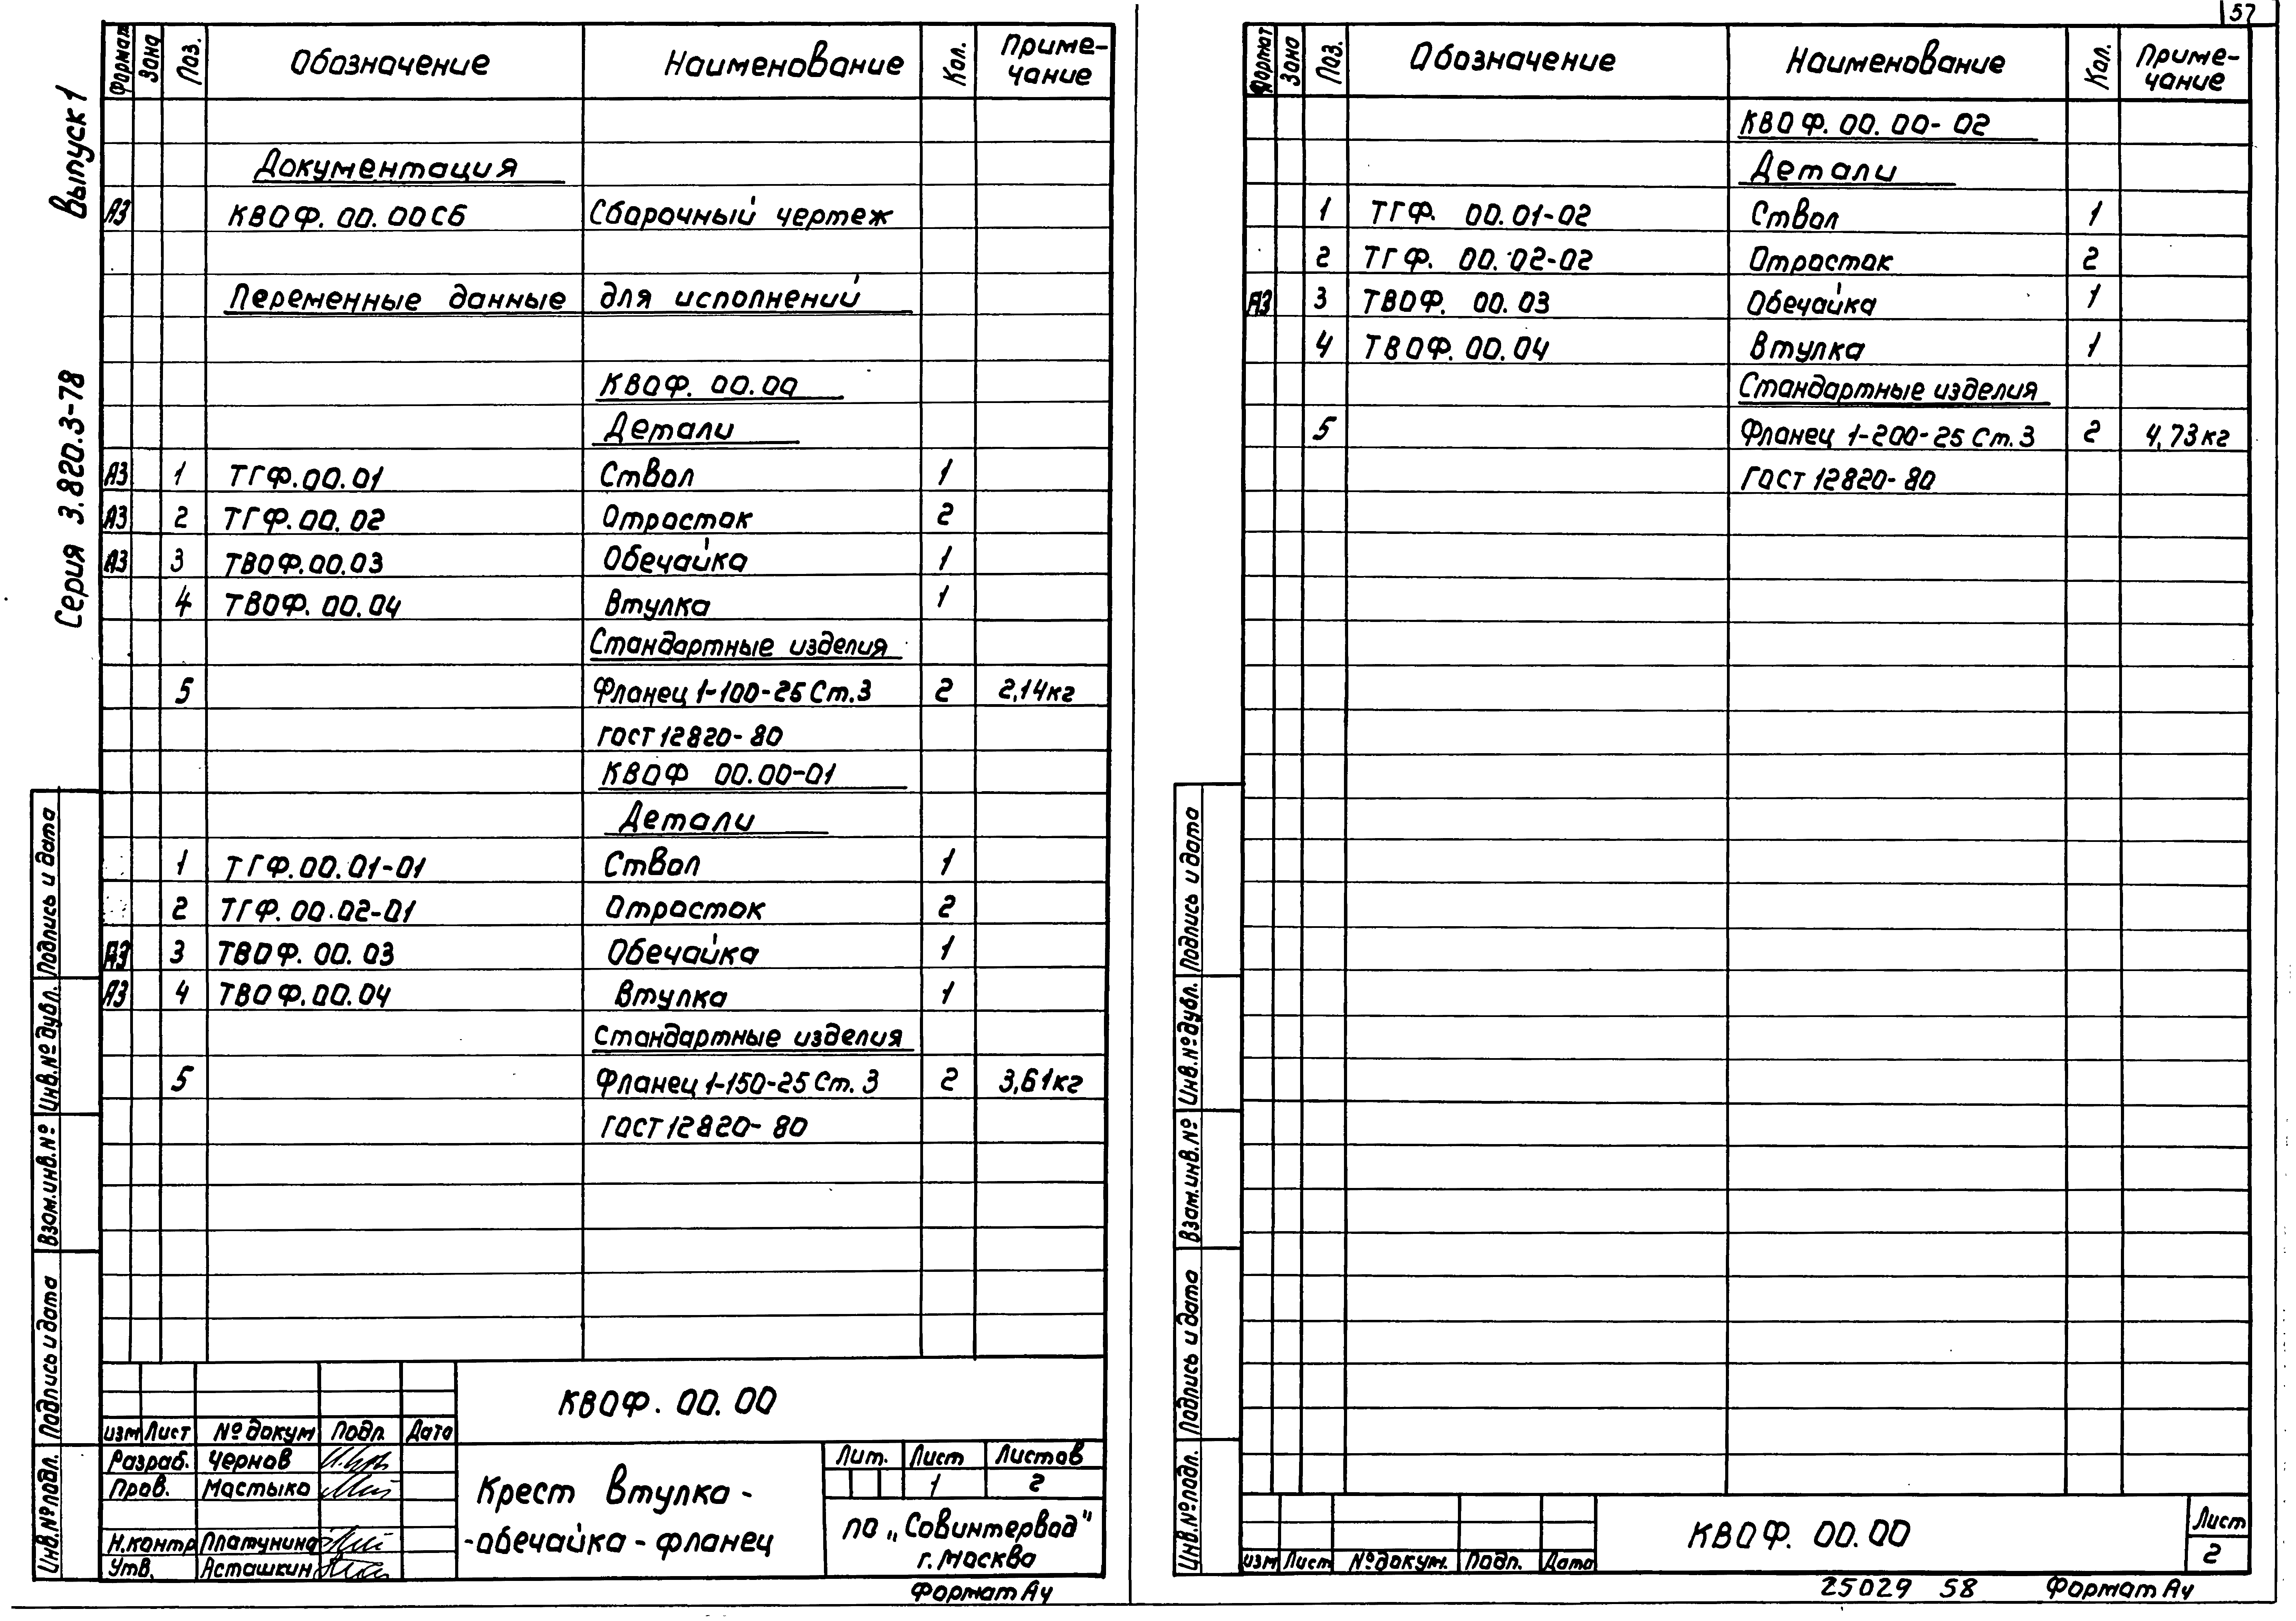 Серия 3.820.3-78 Выпуск 1
Формат Зона Поз. Обозначение Наименование Кол. Приме-
чание
Документация
А3 КВОФ.00.00СБ Сборочный чертеж
Переменные данные для исполнений
КВОФ.00.00
Детали
А3 1 ТГФ.00.01 Ствол 1
А3 2 ТГФ.00.02 Отросток 2
А3 3 ТВОФ.00.03 Обечайка 1
4 ТВОФ.00.04 Втулка 1
Стандартные изделия
5 Фланец 1-100-25 Ст.3 2 2,14кг
ГОСТ 12820-80
КВОФ 00.00-01
Детали
1 ТГФ.00.01-01 Ствол 1
2 ТГФ.00.02-01 Отросток 2
А3 3 ТВОФ.00.03 Обечайка 1
А3 4 ТВОФ.00.04 Втулка 1
Стандартные изделия
5 Фланец 1-150-25 Ст.3 2 3,61кг
ГОСТ 12820-80
Подпись и дата
Инв.№ дубл.
Взам.инв.№
Подпись и дата
Инв.№ подл.
КВОФ.00.00
Изм Лист № докум Подп. Дата
Разраб. Чернов
Пров. Мастыко
Н.контр Платунина
Утв. Асташкин
Крест втулка -
-обечайка - фланец
Лит. Лист Листов
1 2
ПО „Совинтервод"
г. Москва
Формат А4
57
Формат Зона Поз. Обозначение Наименование Кол. Приме-
чание
КВОФ.00.00-02
Детали
1 ТГФ. 00.01-02 Ствол 1
2 ТГФ. 00.02-02 Отросток 2
А3 3 ТВОФ. 00.03 Обечайка 1
4 ТВОФ.00.04 Втулка 1
Стандартные изделия
5 Фланец 1-200-25 Ст.3 2 4,73кг
ГОСТ 12820-80
Подпись и дата
Инв.№ дубл.
Взам.инв.№
Подпись и дата
Инв.№ подл.
Изм Лист № докум. Подп. Дата
КВОФ.00.00
Лист
2
25029 58 Формат А4